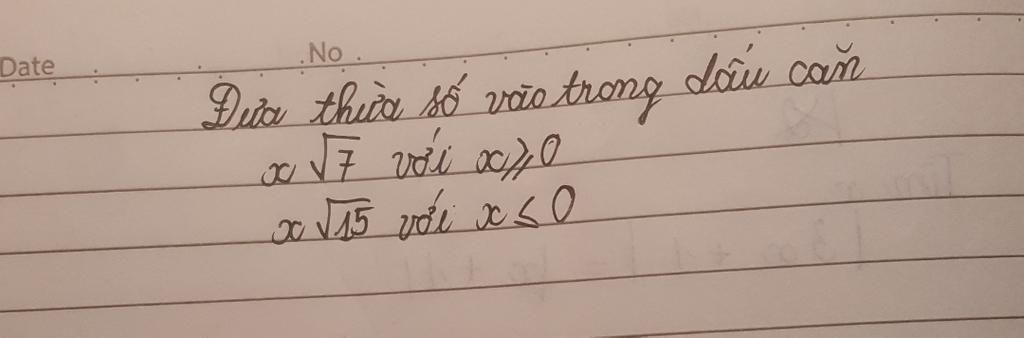 Date No
Đưa thừa số vào trong dấu căn
x√7 với x⩾0
x√15 với x ≤ 0